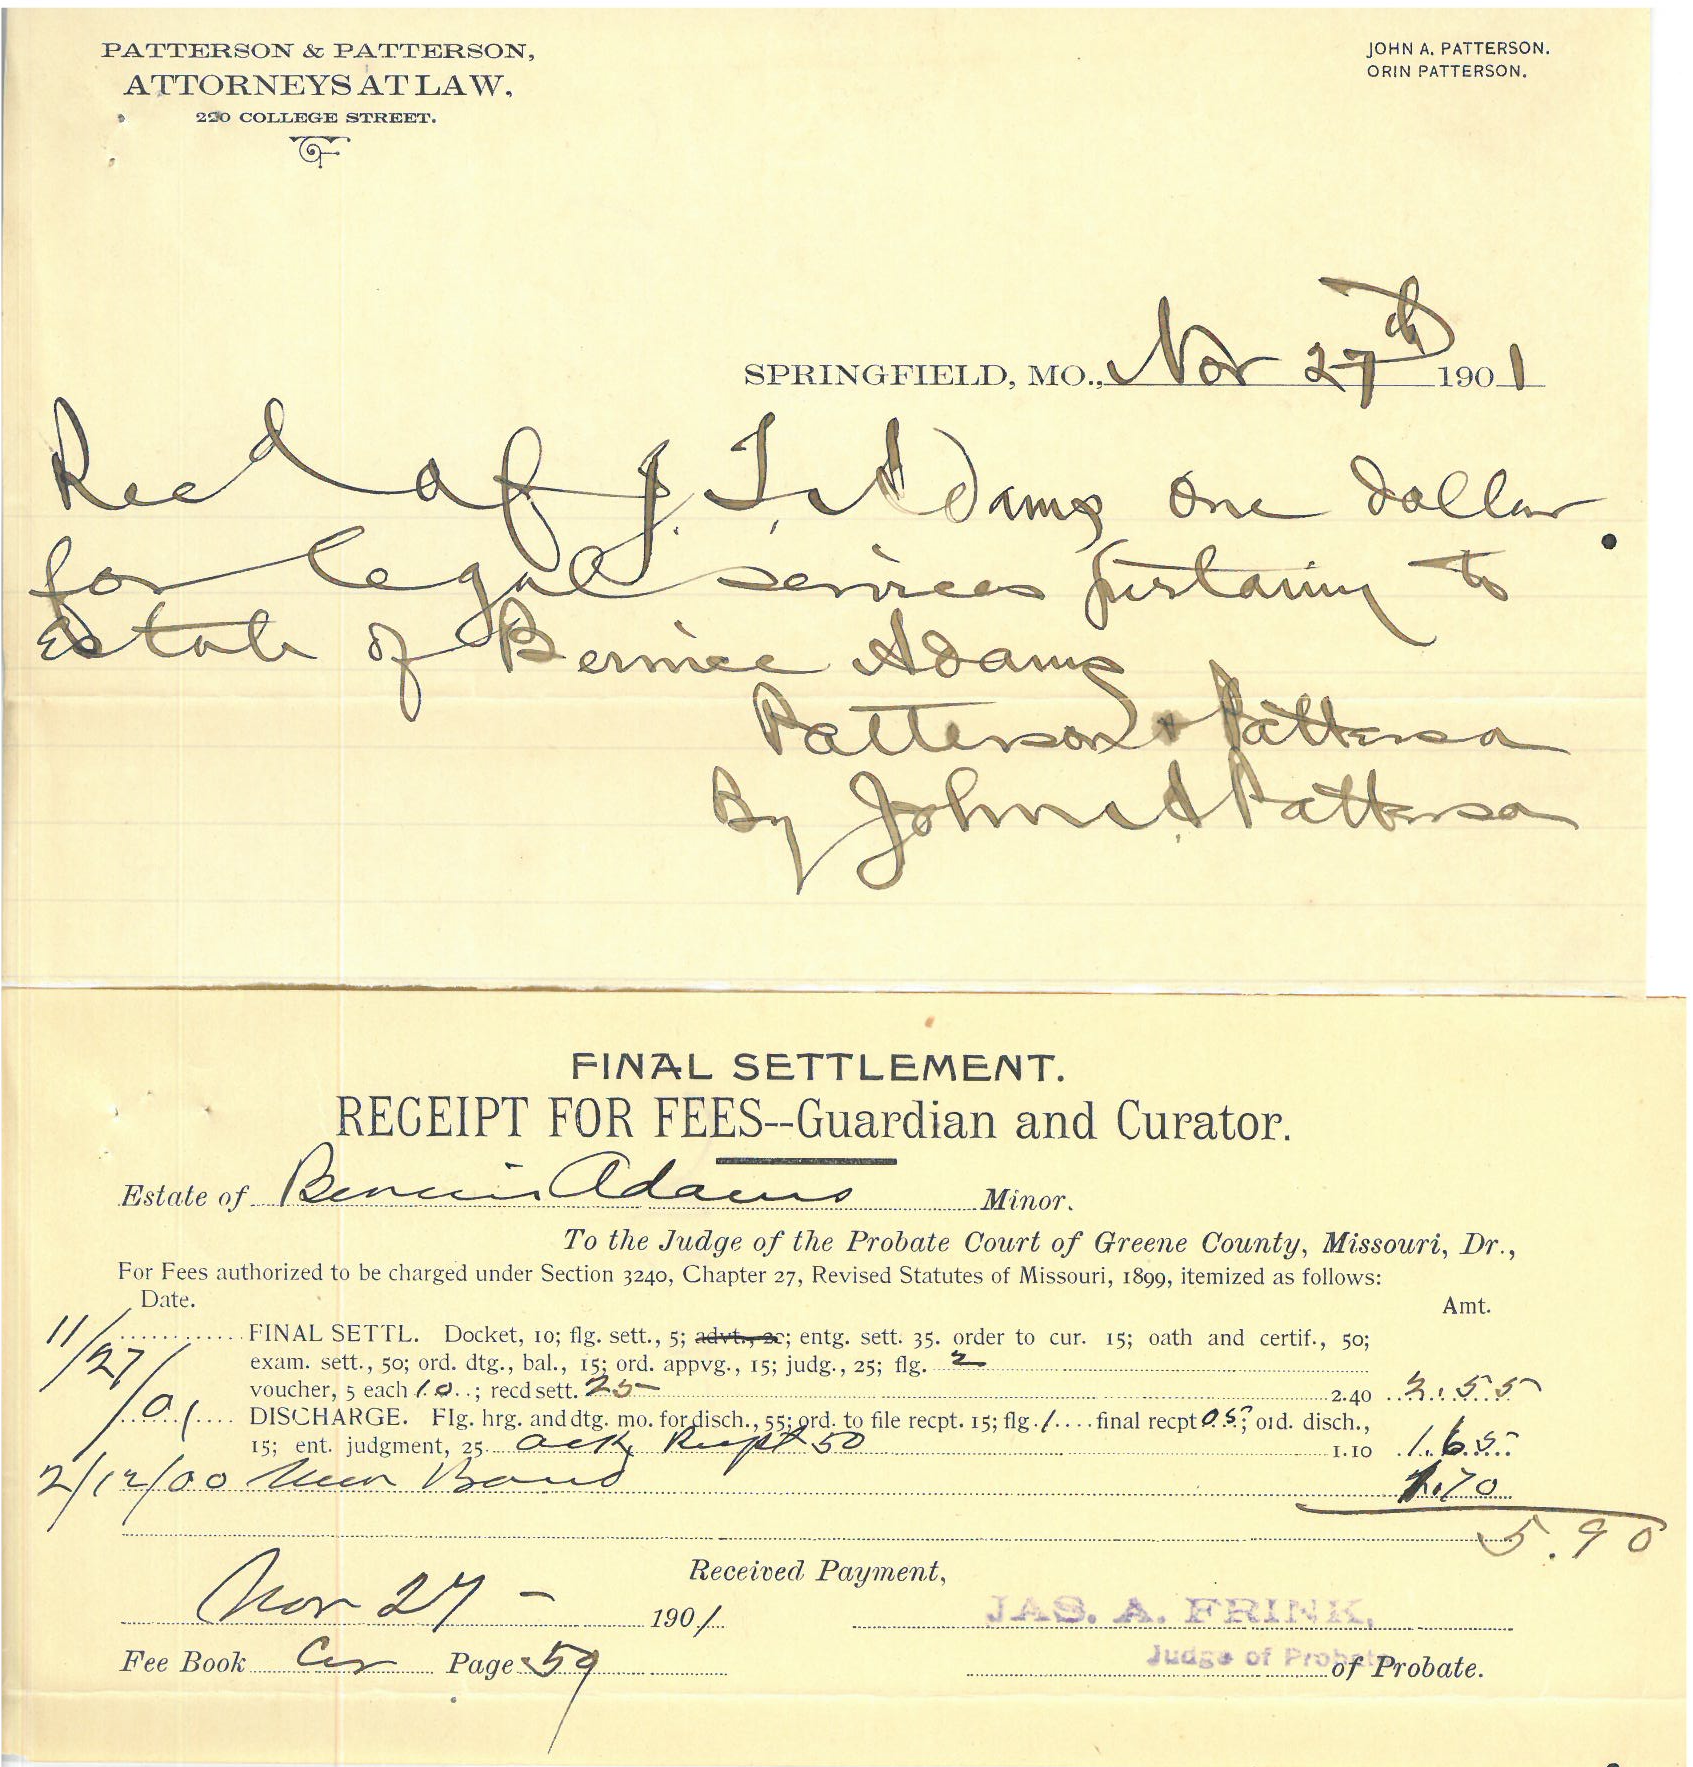 PATTERSON & PATTERSON,
ATTORNEYS AT LAW,
220 COLLEGE STREET.
JOHN A. PATTERSON.
ORIN PATTERSON.
SPRINGFIELD, MO., Nov 27th 1901
Recd of J. T. Adams one dollar
for legal services pertaining to
Estate of Bernice Adams
Patterson & Patterson
By John A Patterson
FINAL SETTLEMENT.
RECEIPT FOR FEES--Guardian and Curator.
Estate of Adams Minor.
To the Judge of the Probate Court of Greene County, Missouri, Dr.,
For Fees authorized to be charged under Section 3240, Chapter 27, Revised Statutes of Missouri, 1899, itemized as follows:
Date. Amt.
11/27/01 FINAL SETTL. Docket, 10; flg. sett., 5; advt., 20; entg. sett. 35. order to cur. 15; oath and certif., 50;
exam. sett., 50; ord. dtg., bal., 15; ord. appvg., 15; judg., 25; flg. 2
voucher, 5 each 10; recd sett. 25 2.40 2.55
DISCHARGE. Flg. hrg. and dtg. mo. for disch., 55; ord. to file recpt. 15; flg. 1 final recpt 05; ord. disch.,
15; ent. judgment, 25 ack Recpt 50 1.10 1.65
2/12/00 Bond 1.70
5.90
Received Payment,
Nov 27 - 1901
JAS. A. FRINK,
Judge of Probate
Fee Book Page 59 of Probate.